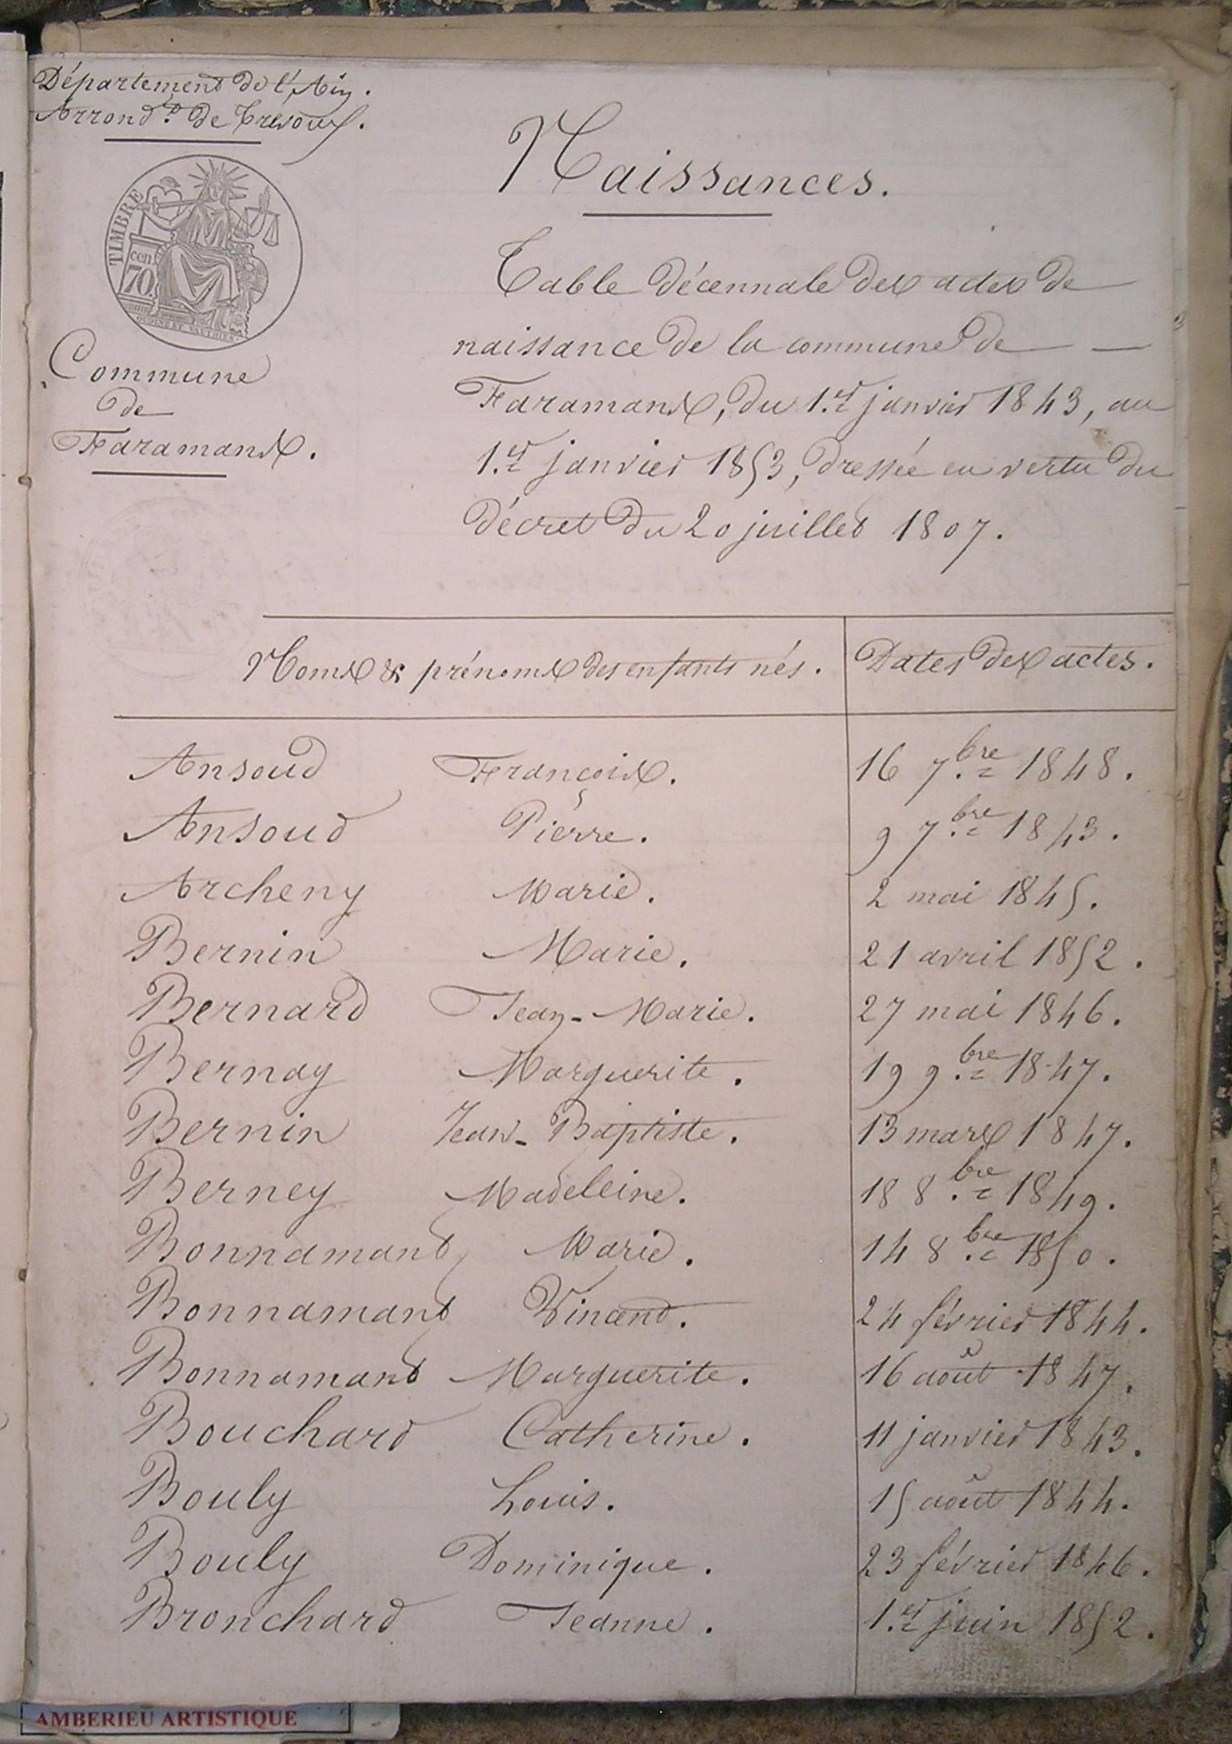 Département de l'Ain.
Arrond.t de Trévoux.
TIMBRE
70 cen
Commune
de
Faramans.
Naissances.
Table décennale des actes de
naissance de la commune de
Faramans, du 1.er janvier 1843, au
1.er janvier 1853, dressée en vertu du
décret du 20 juillet 1807.
Noms & prénoms des enfants nés. Dates des actes.
Ansoud François. 16 7.bre 1848.
Ansoud Pierre. 9 7.bre 1843.
Archeny Marie. 2 mai 1845.
Bernin Marie. 21 avril 1852.
Bernard Jean-Marie. 27 mai 1846.
Bernay Marguerite. 19 9.bre 1847.
Bernin Jean-Baptiste. 13 mars 1847.
Berney Madeleine. 18 8.bre 1849.
Bonnamant Marie. 14 8.bre 1850.
Bonnamant 24 février 1844.
Bonnamant Marguerite. 16 août 1847.
Bouchard Catherine. 11 janvier 1843.
Bouly Louis. 15 août 1844.
Bouly Dominique. 23 février 1846.
Bronchard Jeanne. 1.er juin 1852.
AMBERIEU ARTISTIQUE